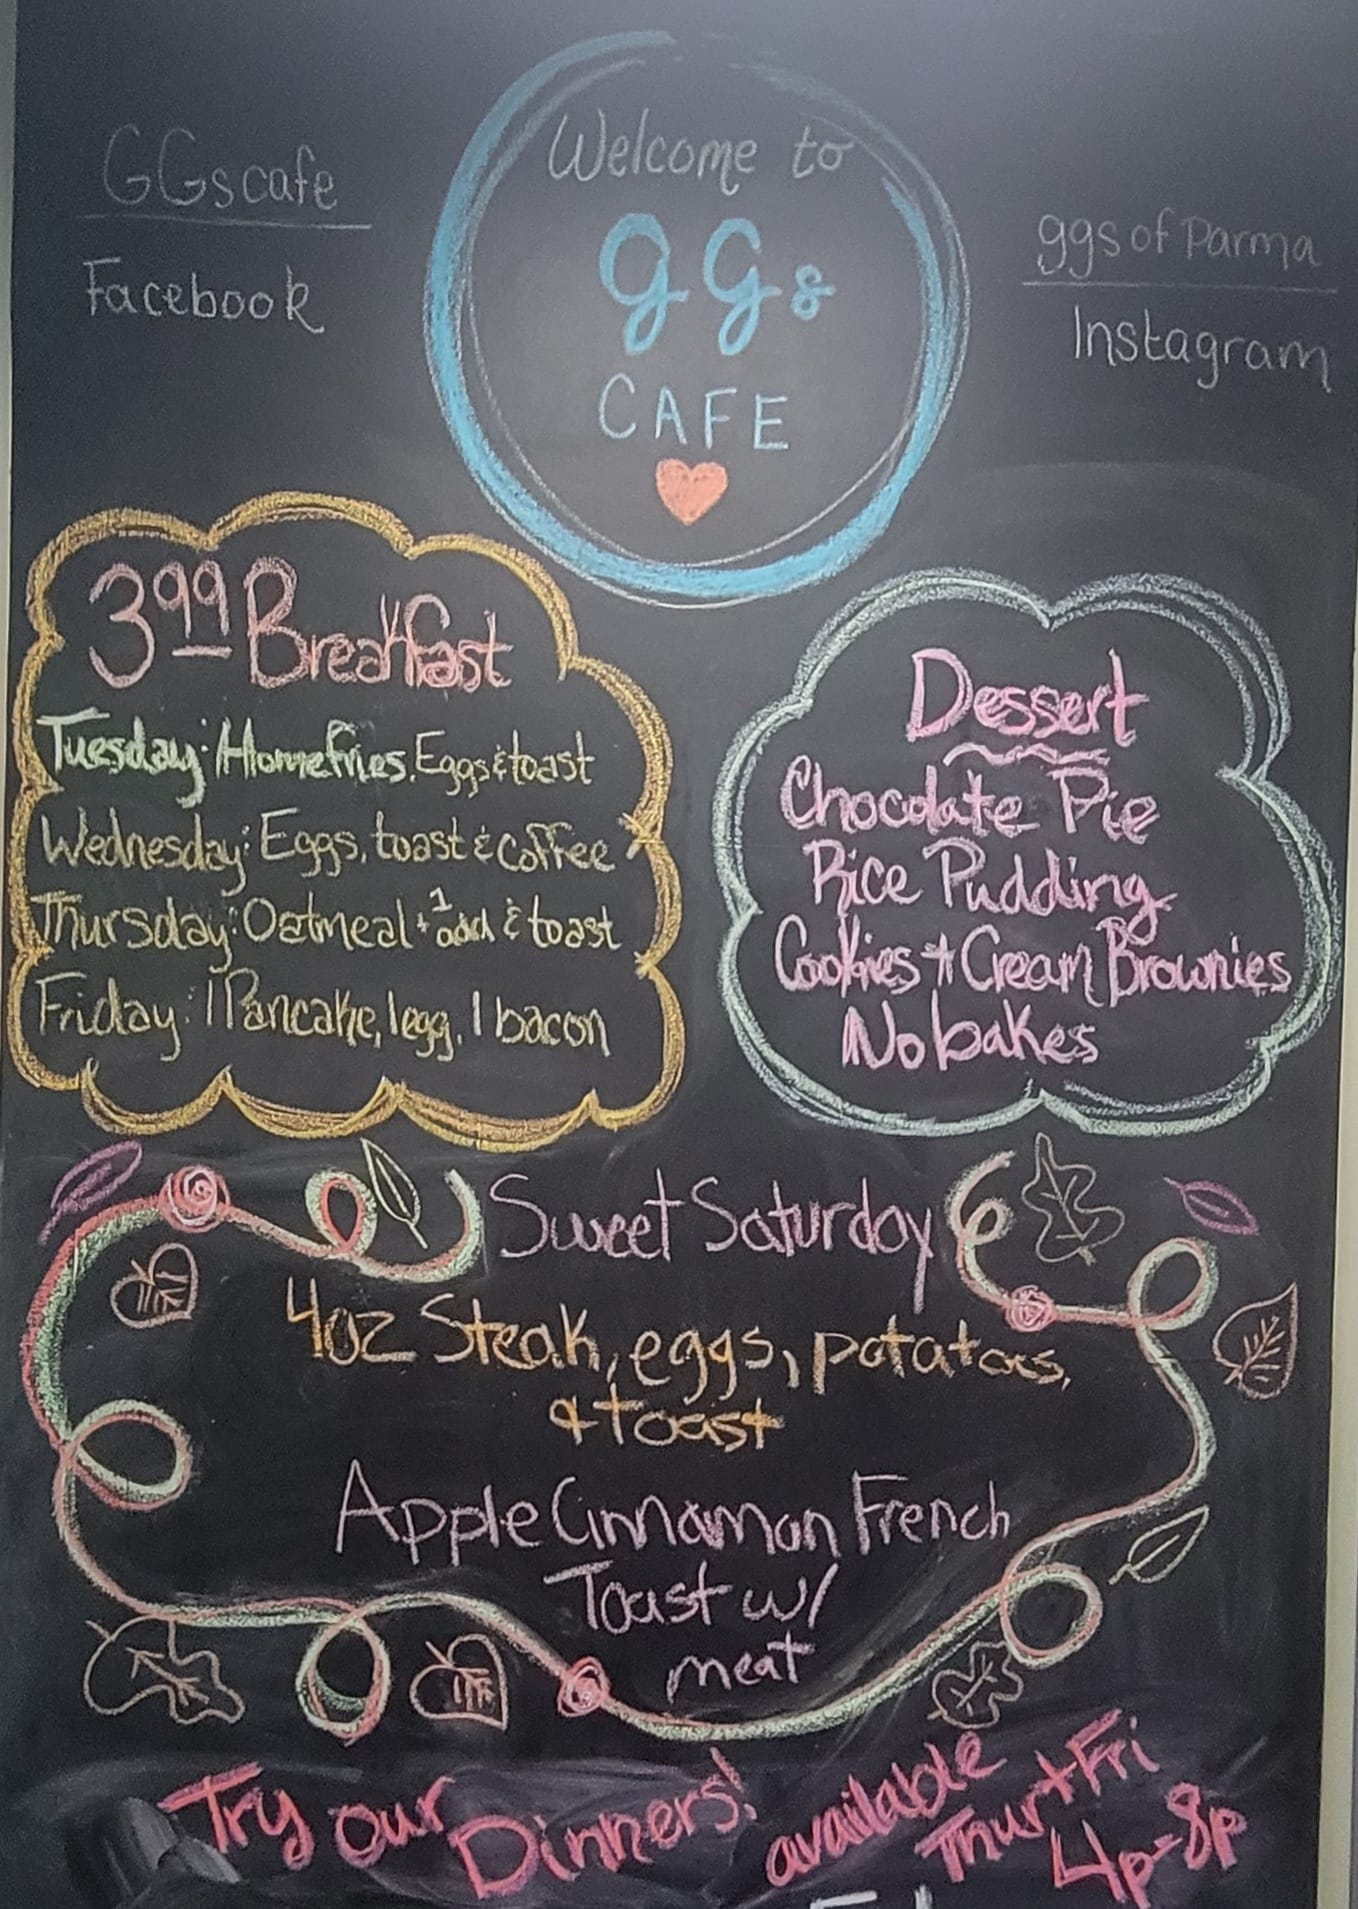 Welcome to
GGs
CAFE
GGs cafe
Facebook
ggs of Parma
Instagram
3.99 Breakfast
Tuesday: Homefries, Eggs & toast
Wednesday: Eggs, toast & coffee
Thursday: Oatmeal + 1 add & toast
Friday: 1 Pancake, 1 egg, 1 bacon
Dessert
Chocolate Pie
Rice Pudding
Cookies + Cream Brownies
No bakes
Sweet Saturday
4oz Steak, eggs, potatoes,
+ toast
Apple Cinnamon French
Toast w/
meat
Try our Dinners!
available
Thur + Fri
4p-8p